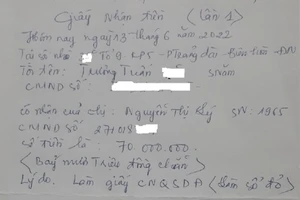 Giấy Nhận tiền (Lần 1)
Hôm nay ngày 13 tháng 6 năm 2022
Tại số nhà Tổ 9 KP5 - P Trảng dài Biên hòa - ĐN
Tôi tên: Trương Tuấn SNăm
CMND số:
có nhận của chị: Nguyễn Thị Lệ SN: 1965
CMND Số 271018
số tiền là: 70.000.000
(Bảy mươi Triệu đồng chẵn)
Lý do. Làm giấy CNQSDĐ (Làm sổ đỏ)